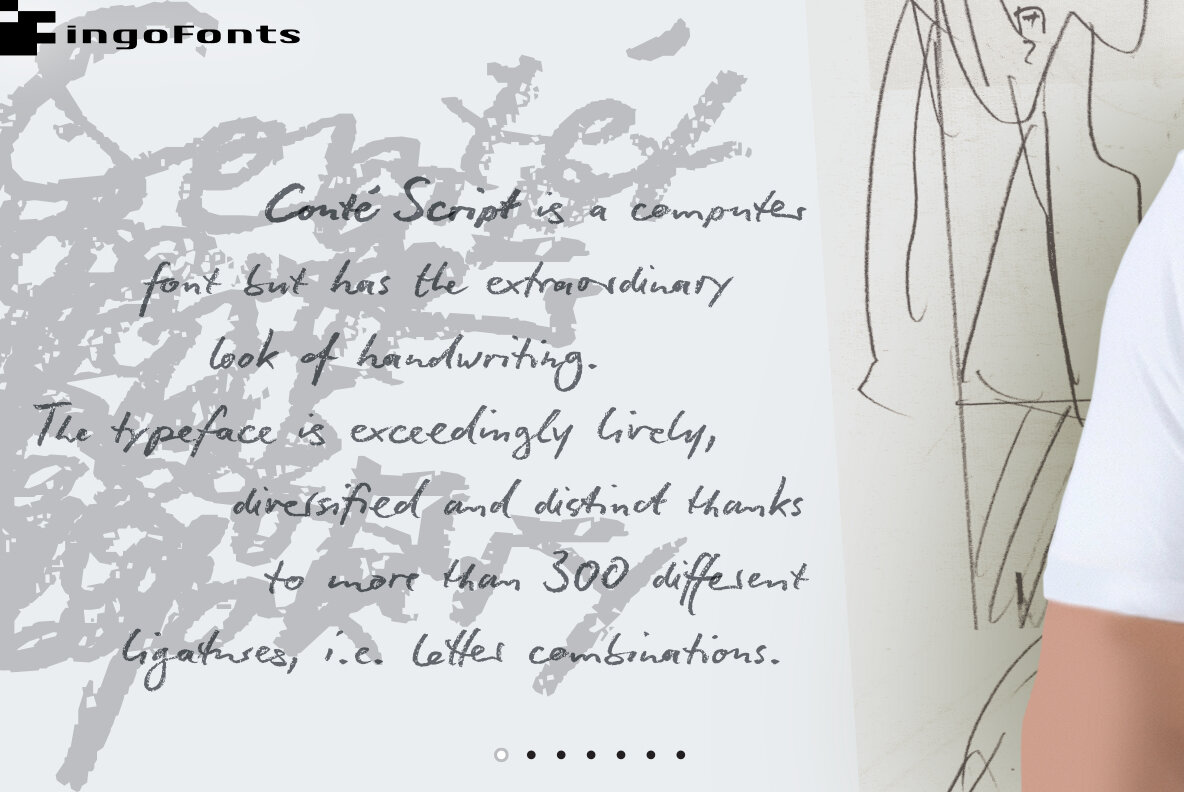 ingoFonts
Conté
Conté Script is a computer
font but has the extraordinary
look of handwriting.
The typeface is exceedingly lively,
diversified and distinct thanks
to more than 300 different
ligatures, i.e. letter combinations.